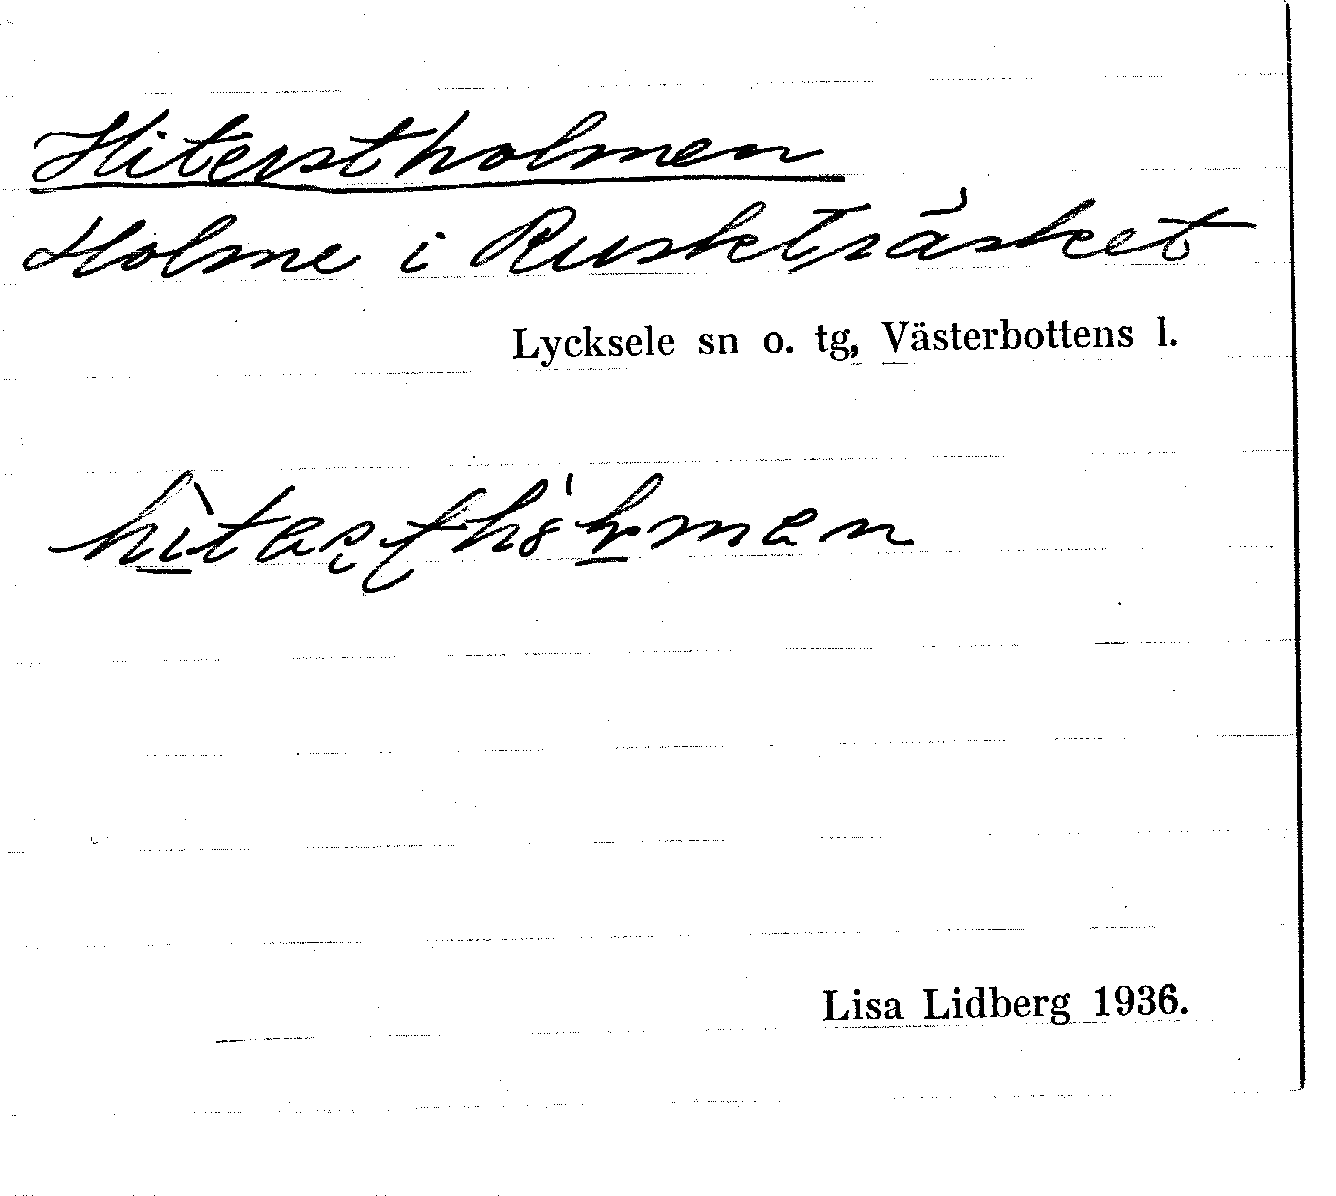 Hiterstholmen
Holme i Ruskträsket
Lycksele sn o. tg, Västerbottens l.
Lisa Lidberg 1936.